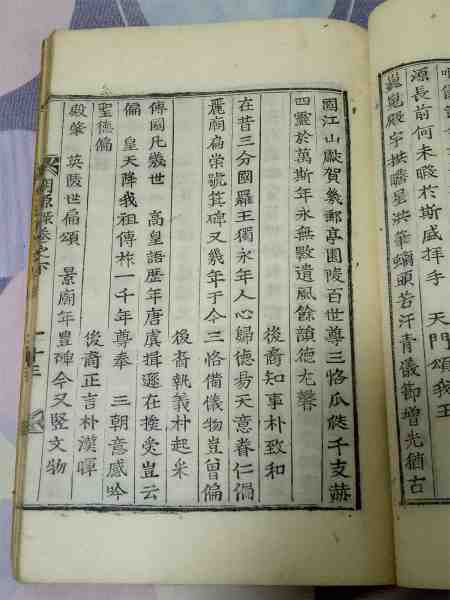 源長前何未暇於斯感拜手 天門頌我王
嵬殿宇拱瞻星
頭若汗青儀節增光猶古
國江山獻賀幾郵亭園陵百世尊三恪瓜瓞千支赫
四靈於萬斯年永無斁遺風餘韻德尤馨
後裔知事朴致和
在昔三分國羅王獨永年人心歸德易天意眷仁偏
麗廟扁崇號箕碑又幾年于今三恪備儀物豈曾偏
後裔執義朴起采
傳國凡幾世 高皇語歷年唐虞揖遜在揆受豈云
偏 皇天降我祖傳祚一千年尊奉 三朝意感吟
聖德偏
後裔正言朴漢暉
殿肇 英陵世扁頌 景廟年豊碑今又竪文物
源錄卷之下